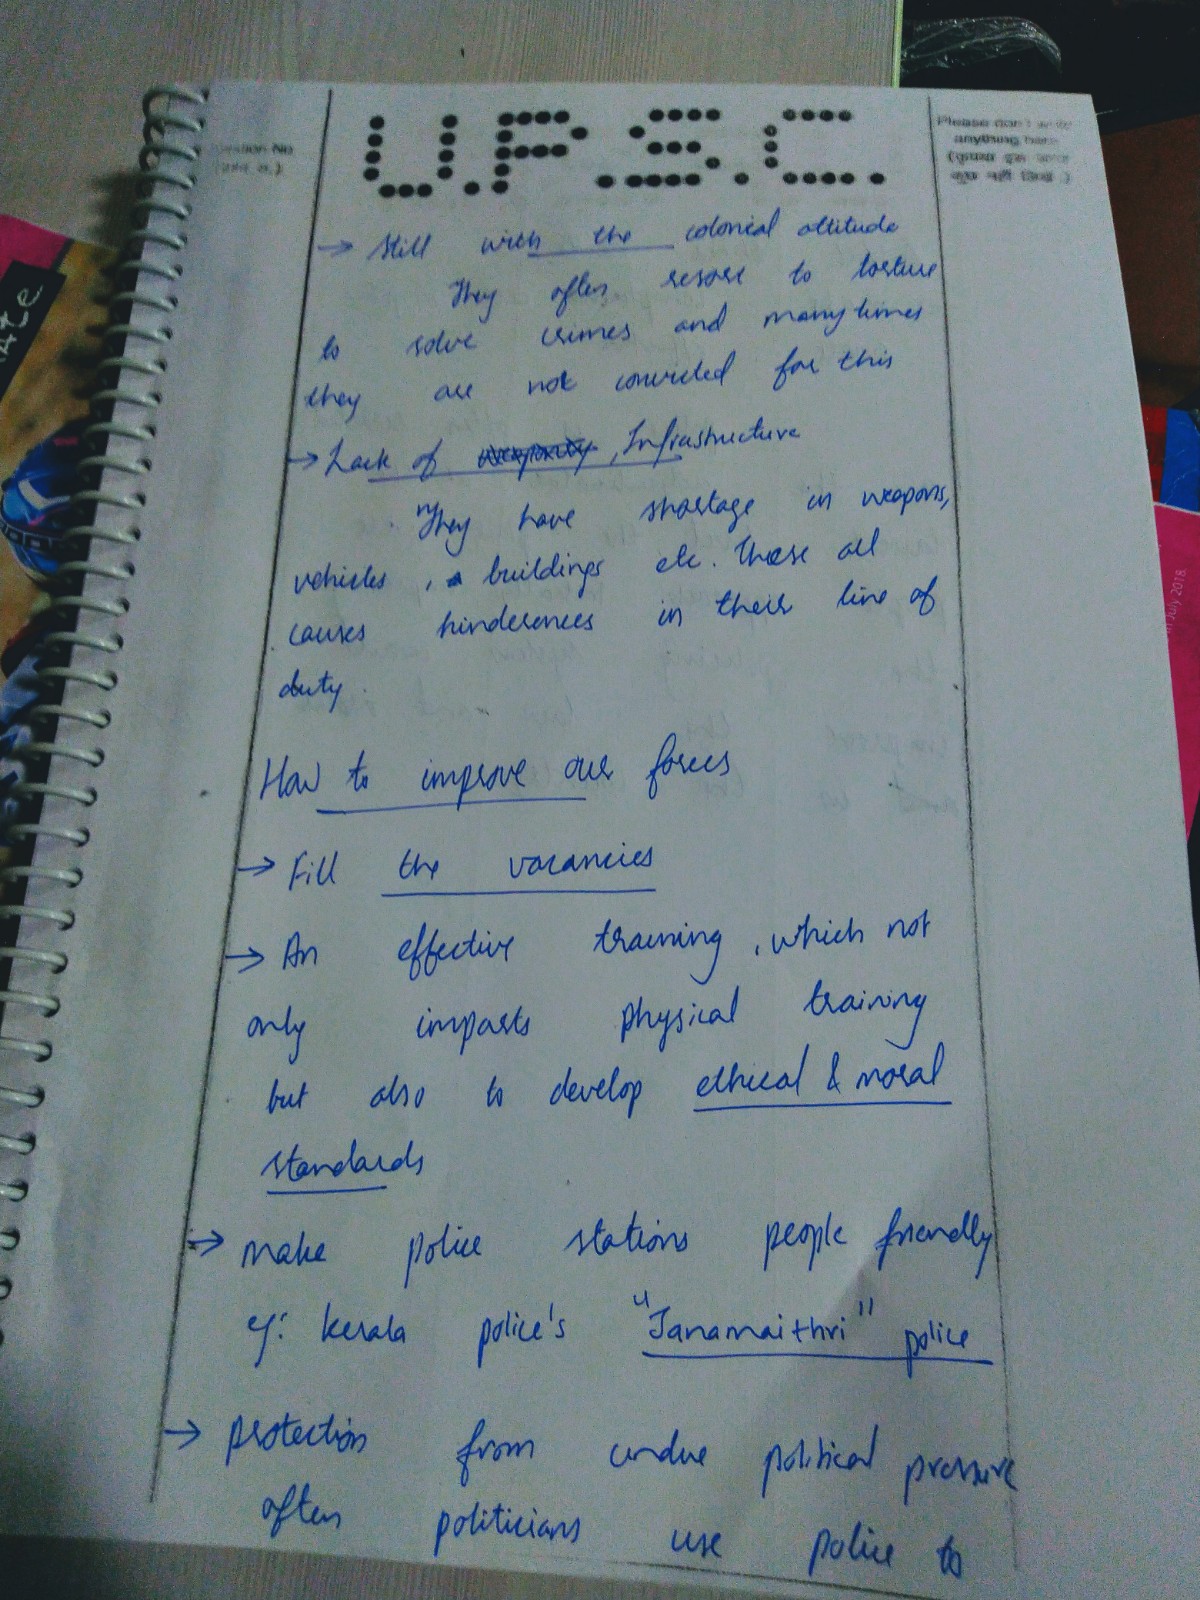 U.P.S.C.
Please don't write
anything here
→ Still with the colonial attitude
They often resort to torture
to solve crimes and many times
they are not convicted for this
→ Lack of , Infrastructure
They have shortage in weapons,
vehicles , buildings etc. These all
causes hinderences in their line of
duty.
How to improve our forces
→ Fill the vacancies
→ An effective training , which not
only imparts physical training
but also to develop ethical & moral
standards
→ make police stations people friendly
eg: Kerala police's "Janamaithri" police
→ protection from undue political pressure
often politicians use police to
July 2018.